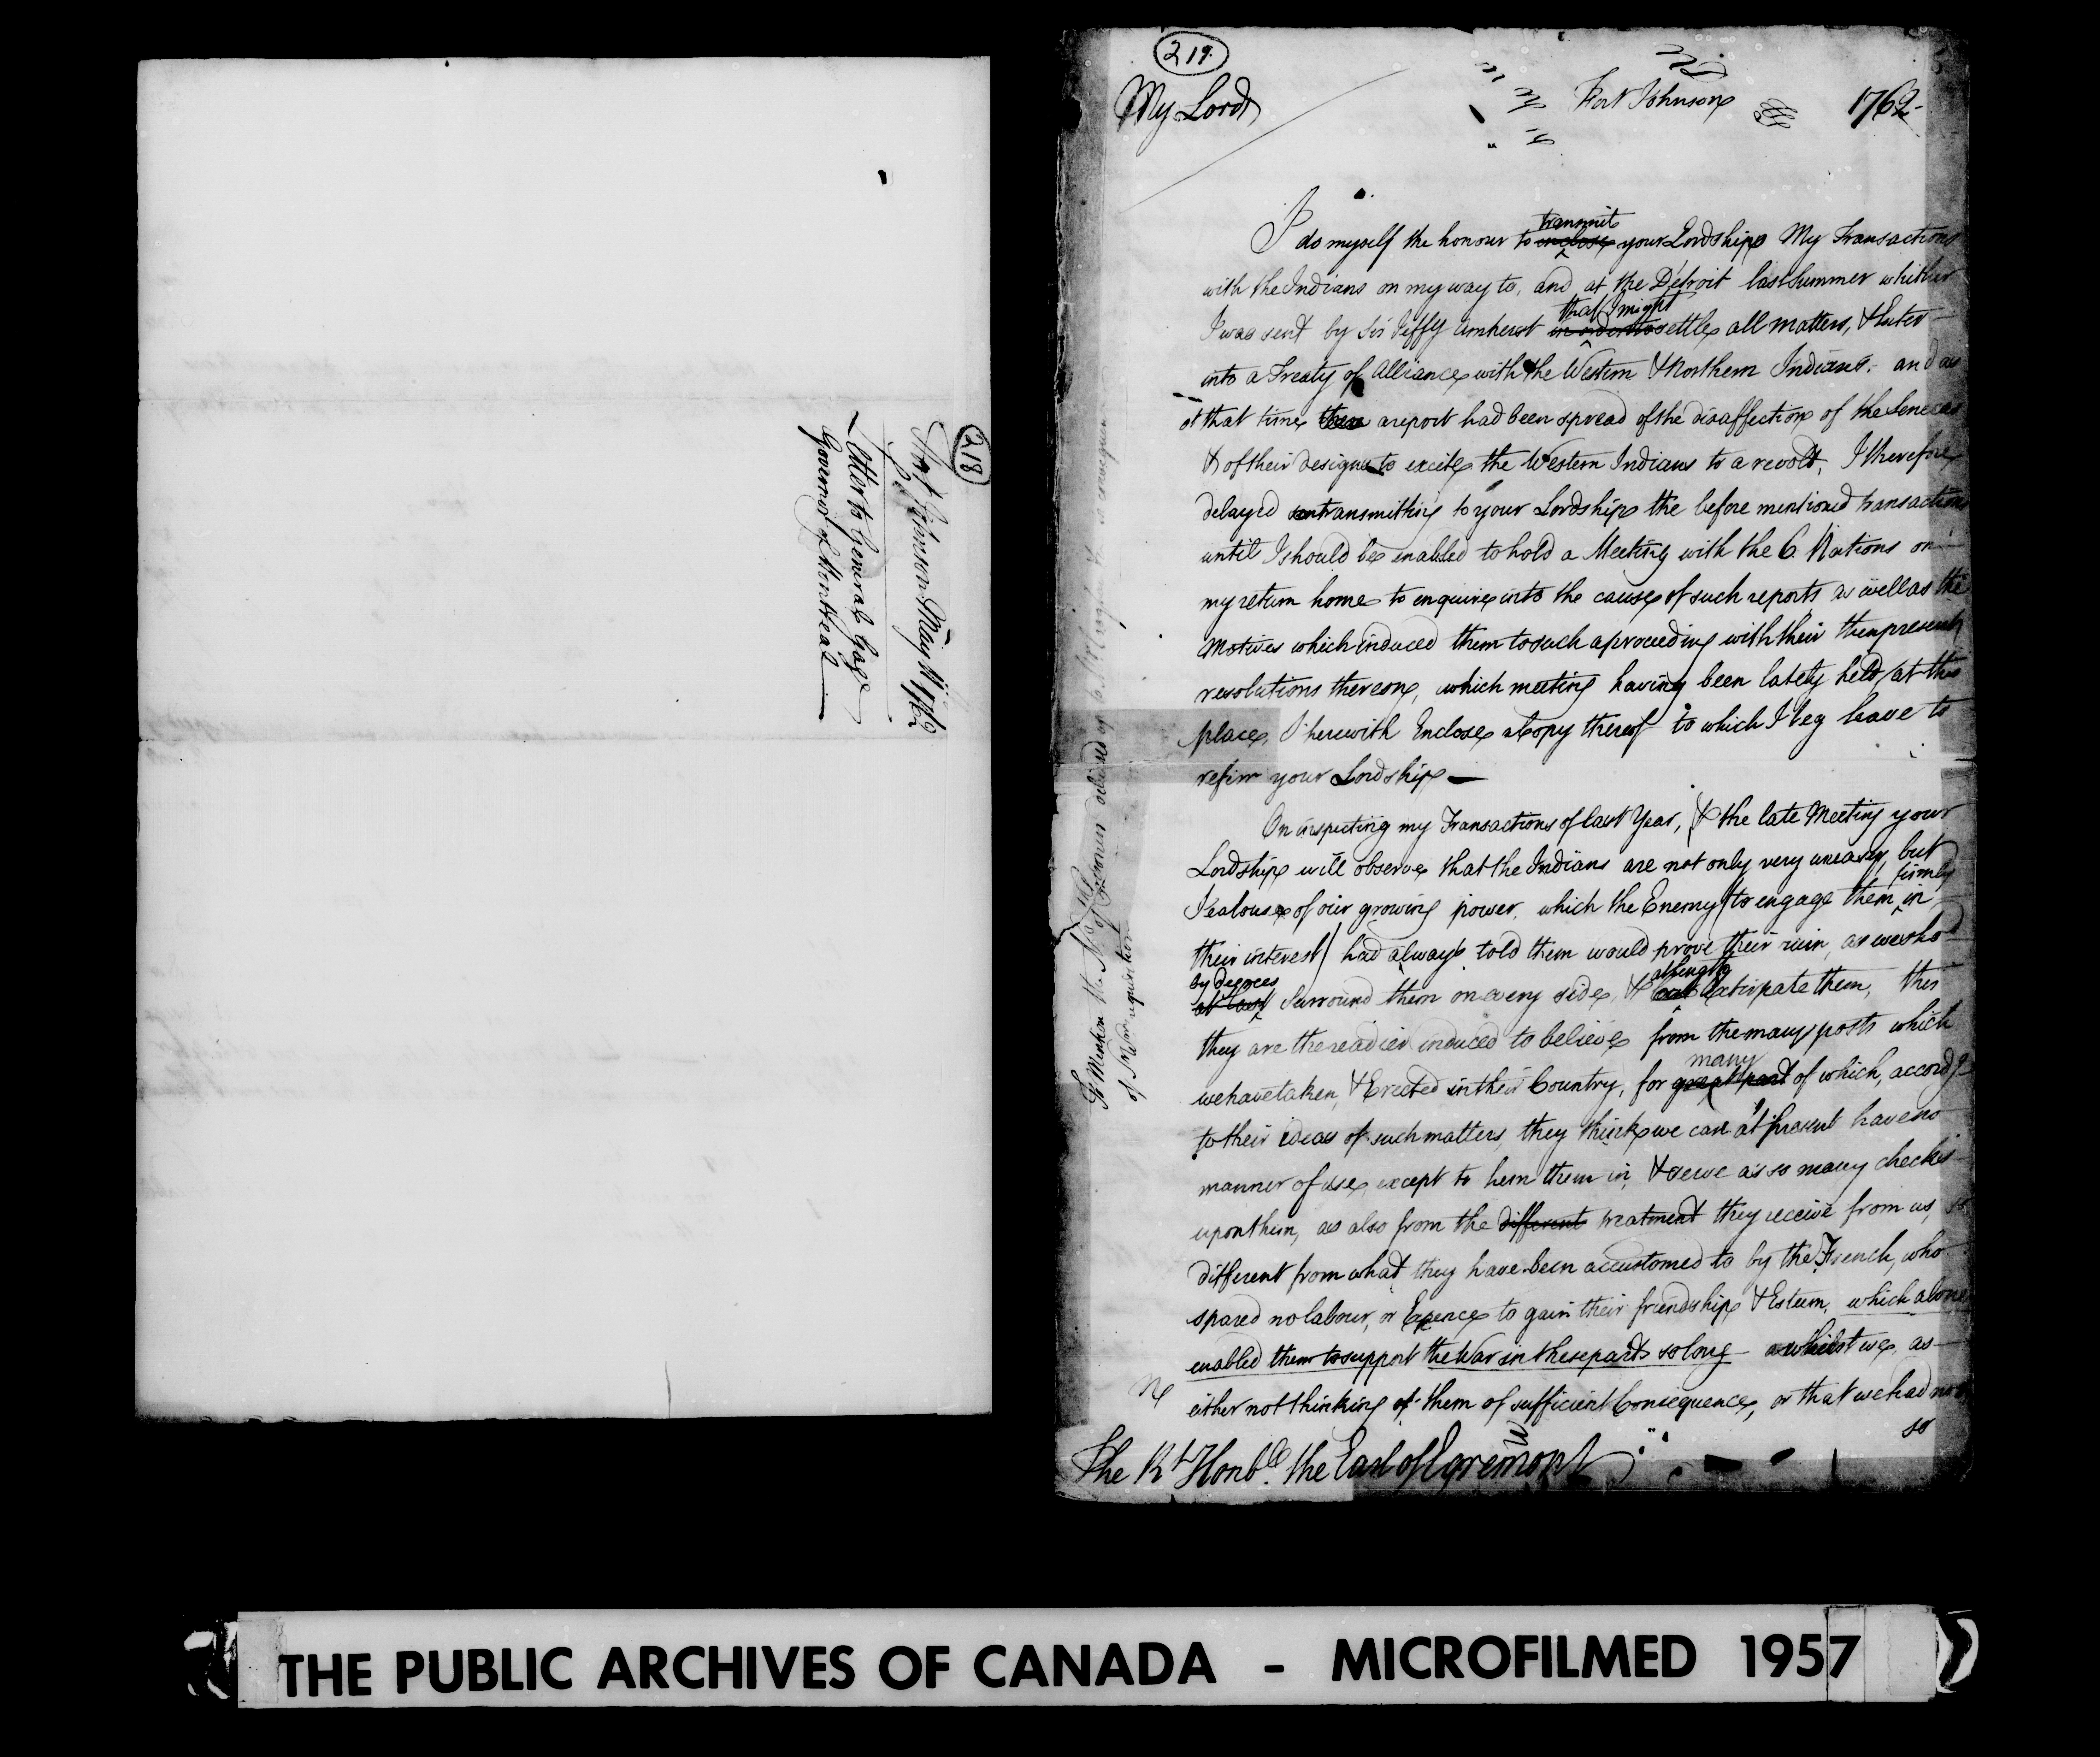 218
Fort Johnson May 1762
Letter to General Gage
Governor of Montreal
219.
My Lord
Fort Johnson 1762-
transmit
I do myself the honour to inclose your Lordship My Transactions
with the Indians on my way to, and at the Détroit last Summer whither
that I might
I was sent by Sir Jeffy Amherst in order to settle all matters, & Enter
into a Treaty of Alliance with the Western & Northern Indians. and as
at that time there a report had been spread of the disaffection of the Senecas
& of their designs to excite the Western Indians to a revolt, I therefore
delayed transmitting to your Lordship the before mentioned transactions
until I should be enabled to hold a Meeting with the 6 Nations on
my return home to enquire into the cause of such reports as well as the
Motives which induced them to such a proceeding with their then present
resolutions thereon, which meeting having been lately held at this
place, I herewith Enclose a Copy thereof to which I beg leave to
refer your Lordship —
On inspecting my Transactions of last Year, & the late Meeting your
Lordship will observe that the Indians are not only very uneasy, but
firmly
Jealous of our growing power, which the Enemy (to engage them in
their interest) had always told them would prove their ruin, as we shod
by degrees
at length
at last Surround them on every side, & Extirpate them, this
they are the readier induced to believe from the many posts which
many
we have taken, & Erected in their Country, for great part of which, accordg
to their ideas of such matters, they think we can at present have no
manner of use, except to hem them in, & serve as so many checks
upon them, as also from the different treatment they receive from us, so
different from what they have been accustomed to by the French, who
spared no labour, or Expence to gain their friendship & Esteem, which alone
enabled them to support the War in these parts so long whilst we, as
either not thinking of them of sufficient Consequence, or that we had not
so
The Rt. Honble. the Earl of Egremont
of Sr Wm requisition
THE PUBLIC ARCHIVES OF CANADA - MICROFILMED 1957